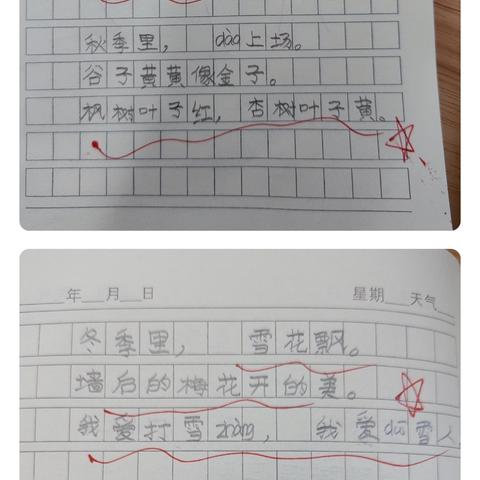 秋季里， dào上场。
谷子黄黄像金子。
枫树叶子红， 杏树叶子黄。
年 月 日 星期 天气
冬季里， 雪花飘。
墙后的梅花开的美。
我爱打雪zhàng， 我爱duī雪人